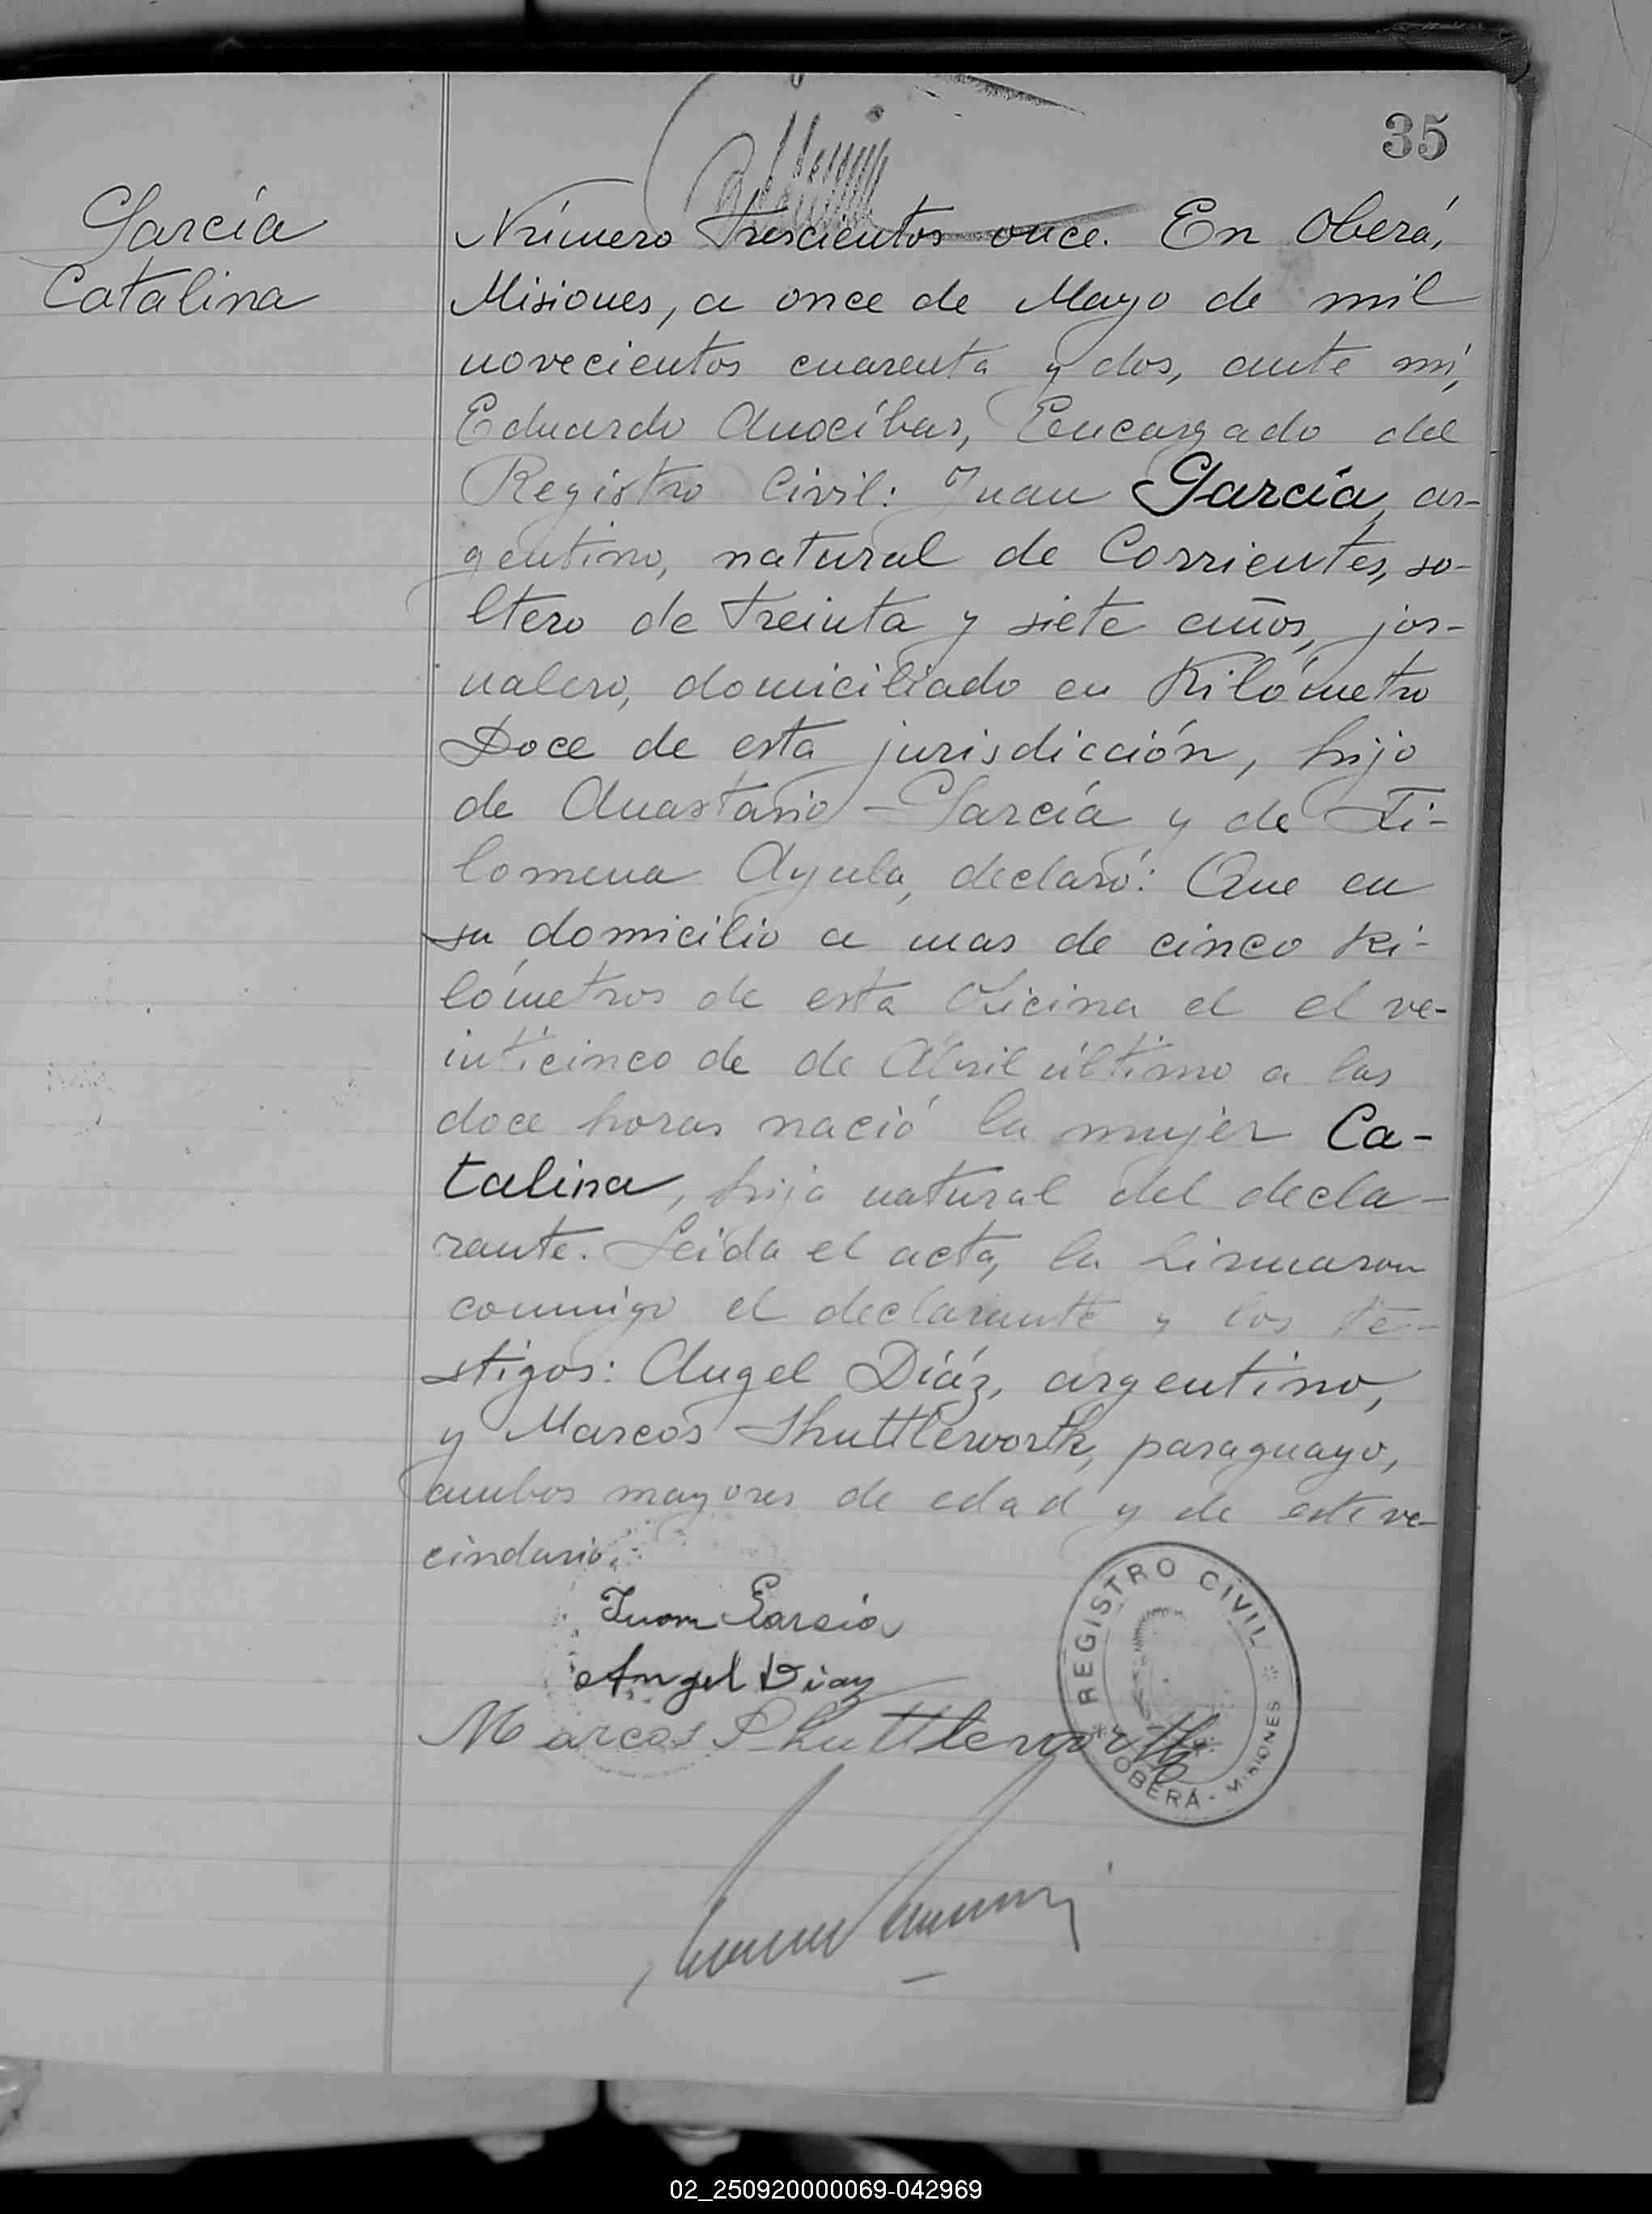 35
García
Catalina
Número trescientos once. En Oberá,
Misiones, a once de Mayo de mil
novecientos cuarenta y dos, ante mí,
Eduardo Anocíbar, Encargado del
Registro Civil: Juan García, ar-
gentino, natural de Corrientes, so-
ltero de treinta y siete años, jor-
nalero, domiciliado en Kilómetro
Doce de esta jurisdicción, hijo
de Anastasio García y de Fi-
lomena Ayala, declaró: Que en
su domicilio a mas de cinco ki-
lómetros de esta Oficina el el ve-
inticinco de de Abril último a las
doce horas nació la mujer Ca-
talina, hija natural del decla-
rante. Leida el acta, la firmaron
conmigo el declarante y los te-
stigos: Angel Diáz, argentino,
y Marcos Shuttleworth, paraguayo,
ambos mayores de edad y de este ve-
cindario.
Juan Garcia
Angel Diaz
Marcos Shuttleworth
REGISTRO CIVIL
* OBERÁ - MISIONES *
02_250920000069-042969